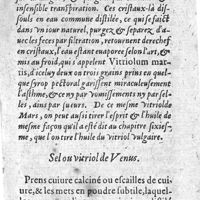 insensible transpiration. Ces cristaux-là dis-
souls en eau commune distilée, ce qui se faict
dans vn iour naturel, purgez & separez d'a-
uec les feces par filtration, retournent derechef
en cristaux, l'eau estant euaporee selon l'art, &
mis au froid, qui s'appelent Vitriolum mar-
tis, d'iceluy deux ou trois grains prins en quel-
que syrop pectoral guarissent miraculeusement
l'asthme, & ce ny par vomissements ny par sel-
les, ains par sueurs. De ce mesme vitriol de
Mars, on peut aussi tirer l'esprit & l'huile de
mesme façon qu'il a esté dit au chapitre sixies-
me, que l'on tire l'huile du vitriol vulgaire.
Sel ou vitriol de Venus.
Prens cuiure calciné ou escailles de cui-
ure, & les mets en poudre subtile, laquel-